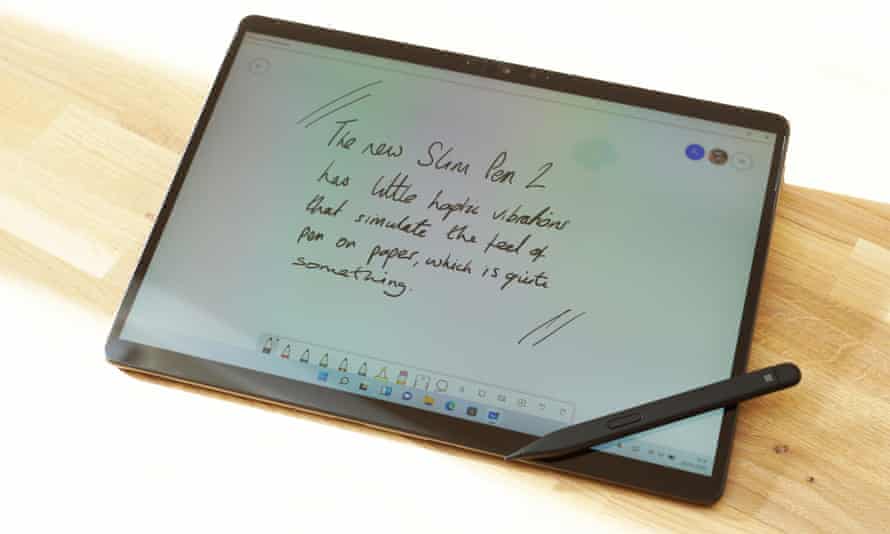 The new Slim Pen 2
has little haptic vibrations
that simulate the feel of
pen on paper, which is quite
something.